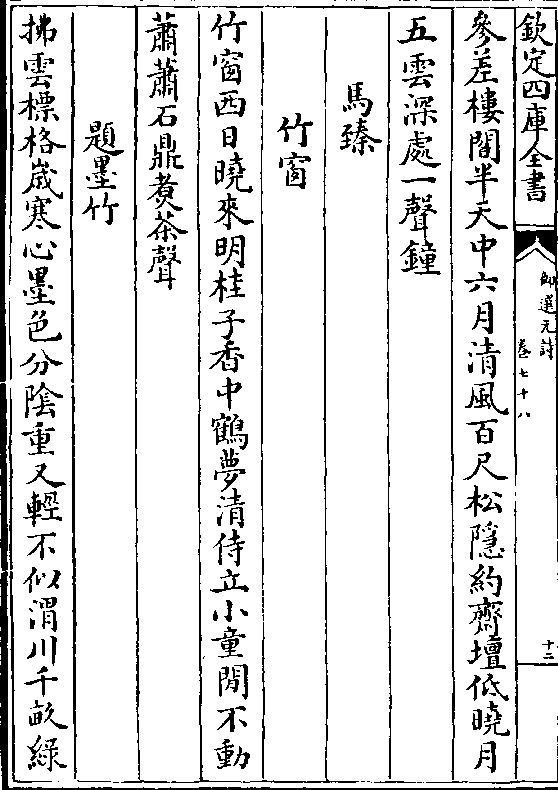 欽定四庫全書
御選元詩
卷七十八
十三
參差樓閣半天中六月清風百尺松隱約齋壇低曉月
五雲深處一聲鐘
馬臻
竹窗
竹窗西日曉來明桂子香中鶴夢清侍立小童閒不動
蕭蕭石鼎煑茶聲
題墨竹
拂雲標格歲寒心墨色分陰重又輕不似渭川千畝綠